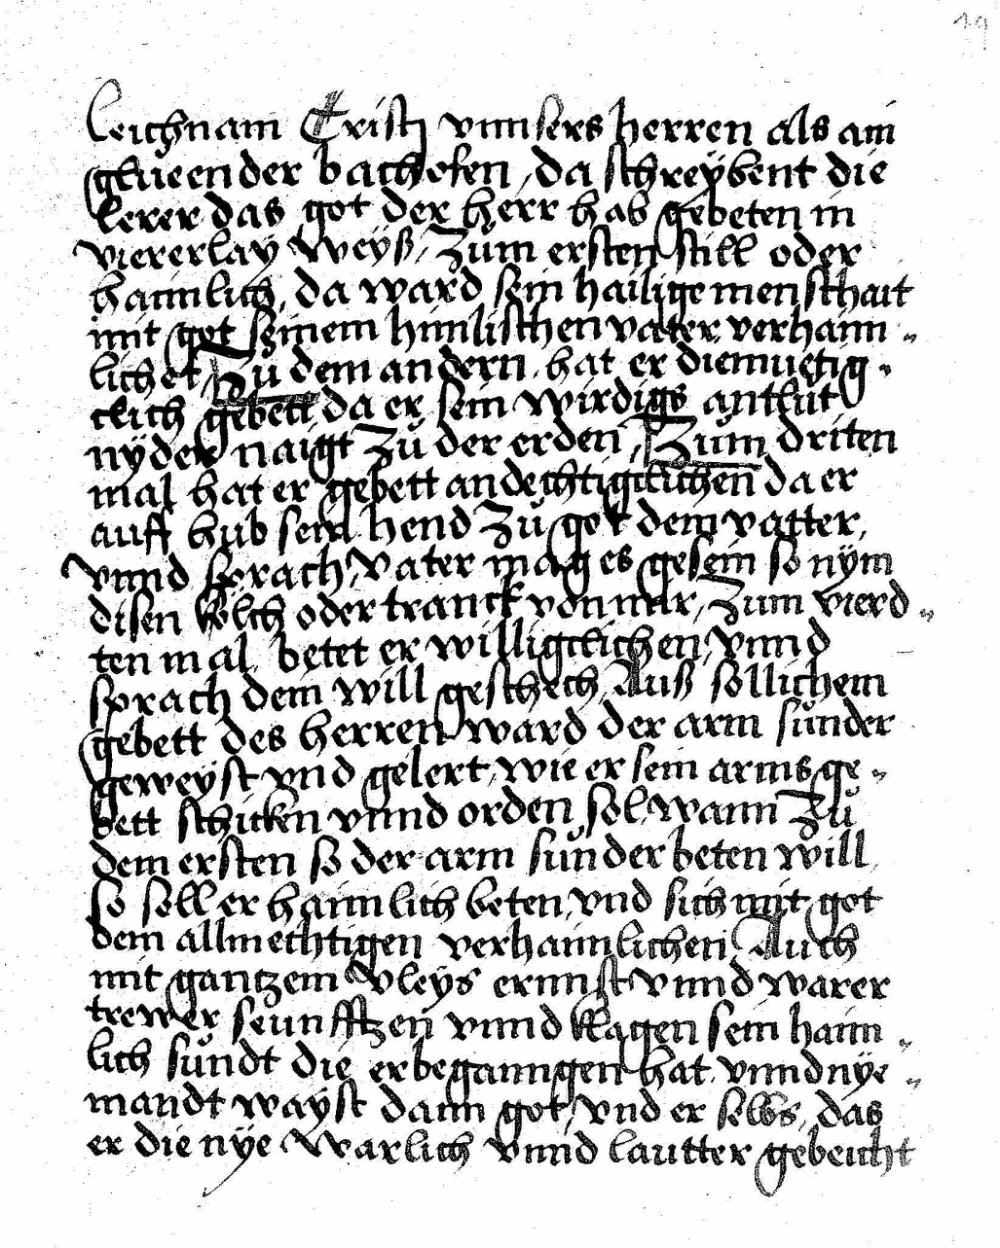 19
Leichnam Cristi vnnsers herren als ain
glüeender bachofen, da schreybent die
lerer das got der herr hab gebeten in
viererlay weyß, Zum ersten still oder
haimlich, da ward sein hailige menschait
mit got seinem himlischen vater verhaim„
lichet, Zu dem andern, hat er diemuetig„
clich gebett da er sein wirdigs antlüt
nyder naigt Zů der erden, Zum driten
mal hat er gebett andechtigclichen da er
auff hub sein hend Zů got dem vatter,
vnnd sprach, vater mag es gesein so nym
disen kelch oder tranck von mir, Zum vierd„
ten mal, betet er willigclichen, vnnd
sprach dein will geschech, Auß sollichem
gebett des herren ward der arm sůnder
geweyst vnd gelert, wie er sein arms ge„
bett schicken vnnd orden sol, wann Zů
dem ersten so der arm sůnder beten will,
so soll er haimlich beten, vnd sich mit got
dem allmechtigen verhaimlichen, Auch
mit gantzem vleys ernnst vnnd warer
trewer seunfftzen vnnd klagen sein haim„
lich sůndt die er begangen hat, vnnd nye„
mandt wayst dann got, vnd er selbs, das
er die nye warlich vnnd lautter gebeicht